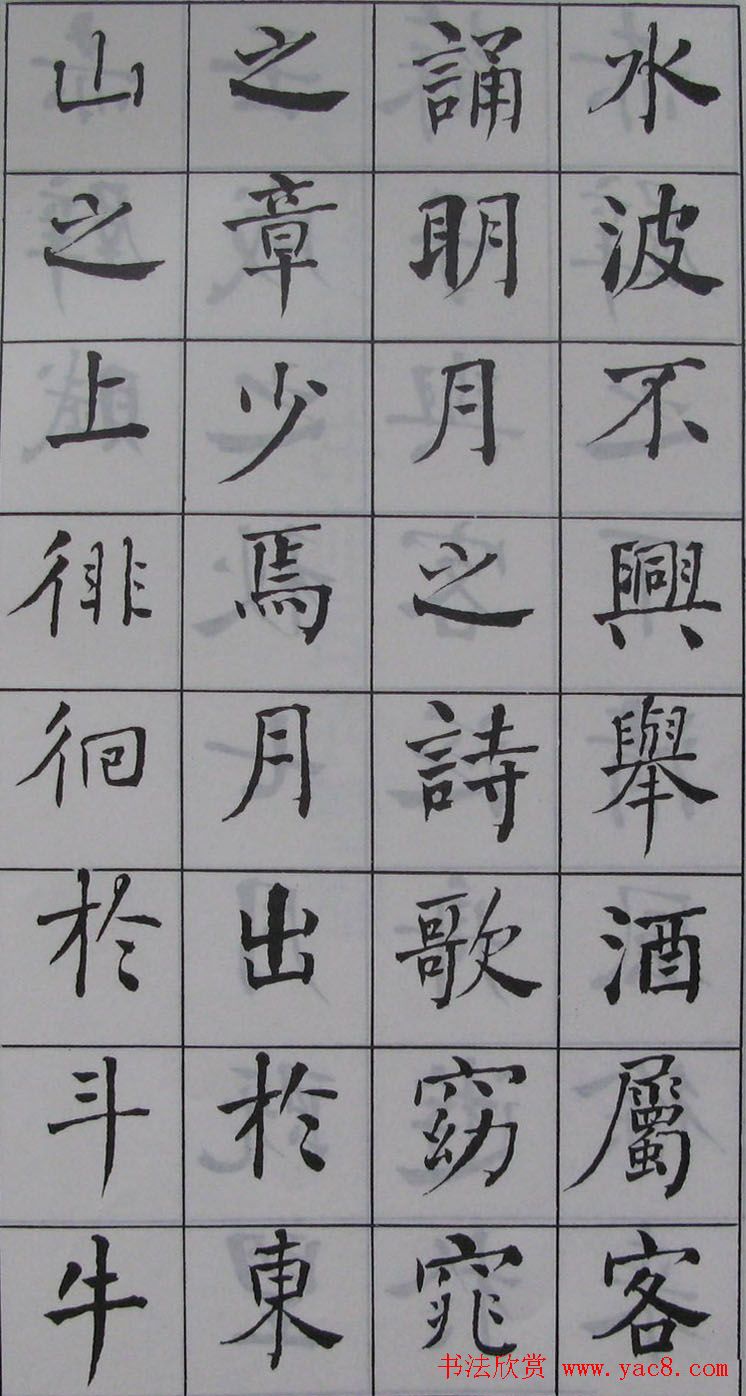 水波不興舉酒屬客
誦明月之詩歌窈窕
之章少焉月出於東
山之上徘徊於斗牛
书法欣赏 www.yac8.com